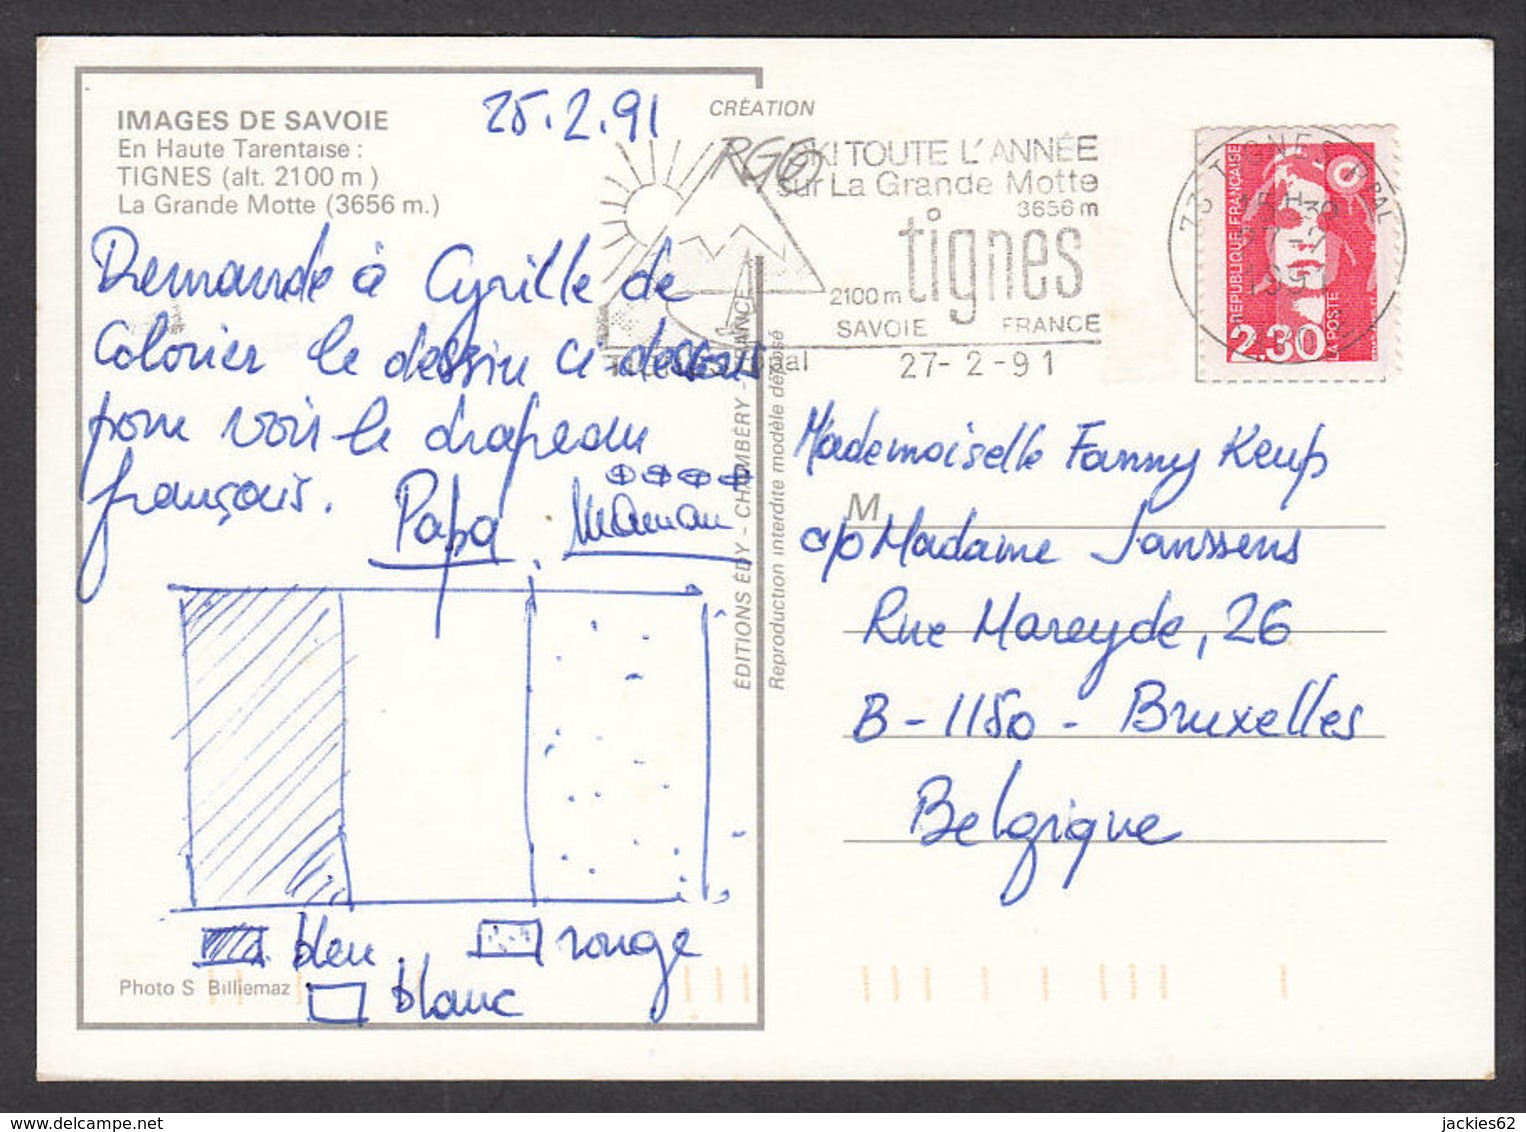 IMAGES DE SAVOIE
En Haute Tarentaise :
TIGNES (alt. 2100 m )
La Grande Motte (3656 m.)
25.2.91
CRÉATION
RGO
SKI TOUTE L'ANNÉE
sur La Grande Motte
3656 m
tignes
2100 m
SAVOIE FRANCE
27-2-91
73 TIGNES PPAL
15H30
27-2
1991
RÉPUBLIQUE FRANÇAISE
2.30
LA POSTE
Demande à Cyrille de
Colorier le dessin ci-dessous
pour voir le drapeau
français.
Papa . Maman
ÉDITIONS ÉDY - CHAMBÉRY - FRANCE
Reproduction interdite modèle déposé
bleu
rouge
blanc
Photo S Billiemaz
M
Mademoiselle Fanny Keup
c/o Madame Janssens
Rue Mareyde, 26
B-1150 - Bruxelles
Belgique
jackies62